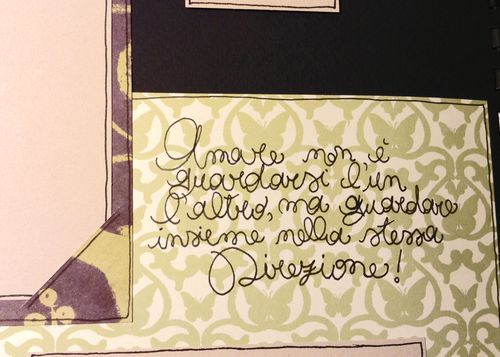 Amare non è
guardarsi l'un
l'altro, ma guardare
insieme nella stessa
Direzione!